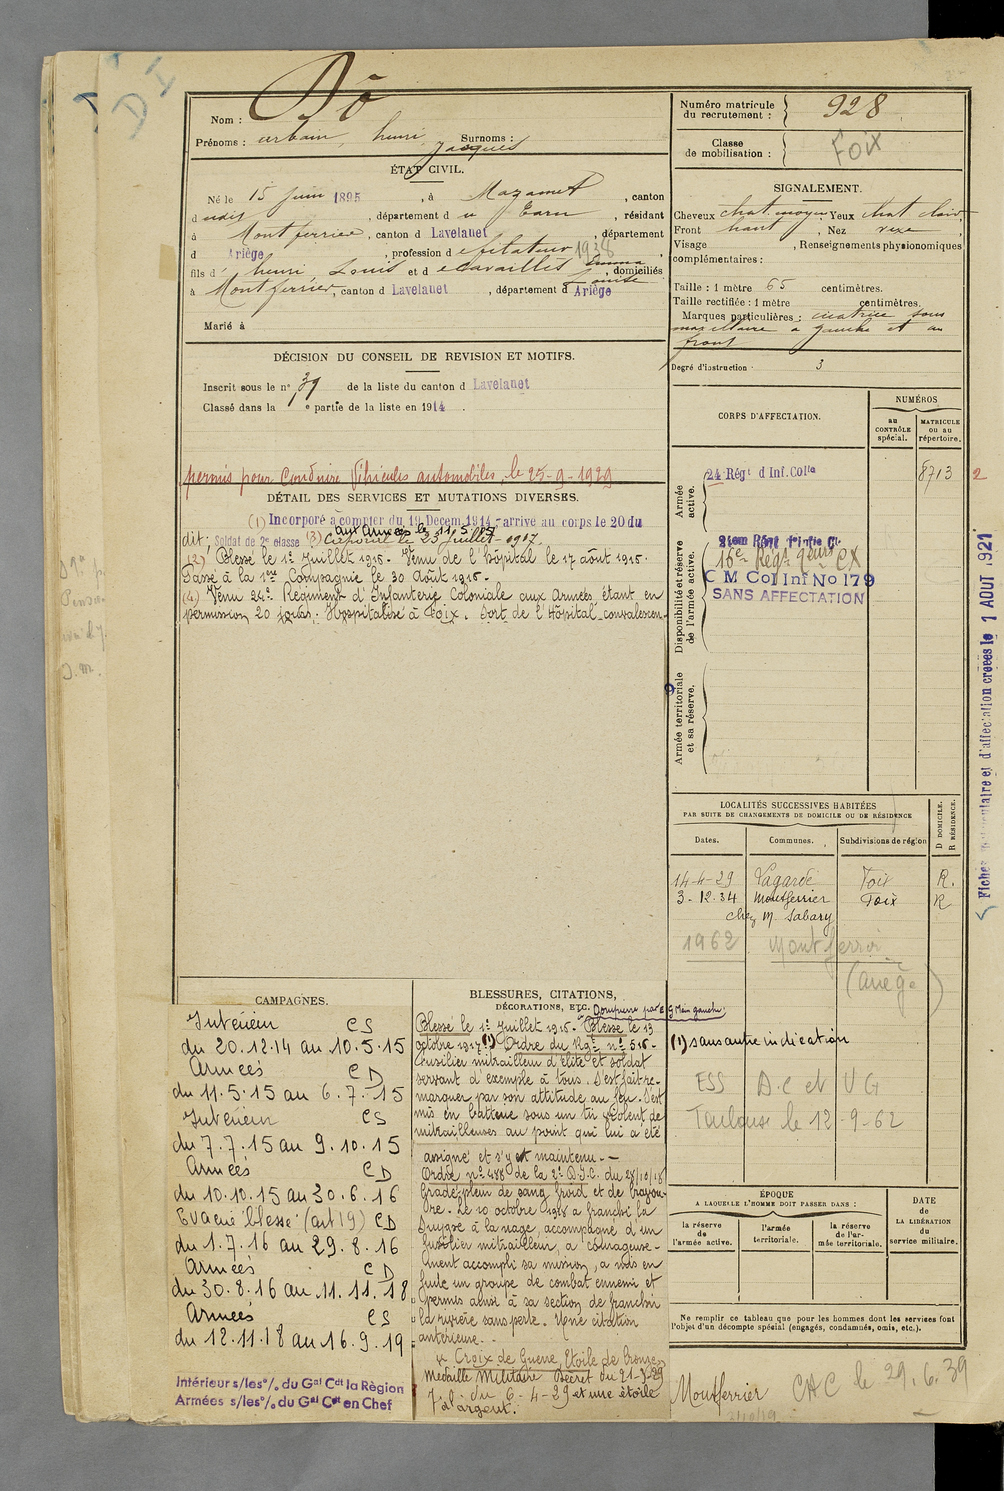 DI
Nom : Dô
Prénoms : urbain, henri, Jacques Surnoms :
Numéro matricule du recrutement : 928
Classe de mobilisation : Foix
ÉTAT CIVIL.
Né le 15 Juin 1895, à Mazamet, canton
dudis, département du Tarn, résidant
à Montferrier, canton d Lavelanet, département
d Ariège, profession de filateur 1938
fils d' henri, Louis et de Cavaillès Emma Louise, domiciliés
à Montferrier, canton d Lavelanet, département d Ariège
Marié à
SIGNALEMENT.
Cheveux chat. moyen Yeux chat clair
Front haut, Nez vexe,
Visage , Renseignements physionomiques
complémentaires :
Taille : 1 mètre 65 centimètres.
Taille rectifiée : 1 mètre centimètres.
Marques particulières : cicatrice sous
maxillaire a gauche et au
front
Degré d'instruction 3
DÉCISION DU CONSEIL DE REVISION ET MOTIFS.
Inscrit sous le n° 39 de la liste du canton d Lavelanet
Classé dans la 1e partie de la liste en 1914.
permis pour Conduire Véhicules automobiles, le 25-9-1929
DÉTAIL DES SERVICES ET MUTATIONS DIVERSES.
(1) Incorporé à compter du 19 Décem 1914 - arrivé au corps le 20 du
aux armées le 11.5.15
dit; Soldat de 2e classe (3) Caporal le 23 Juillet - 1917.
(2) Blessé le 1er Juillet 1916. Venu de l'hôpital le 17 août 1916.
Passé à la 1ère Compagnie le 30 Août 1916 -
(4) Venu 24e Régiment d'Infanterie Coloniale aux Armées étant en
permission 20 jours. Hospitalisé à Foix. Sort de l'Hôpital convalescen-
CORPS D'AFFECTATION.
NUMÉROS
au CONTRÔLE spécial.
MATRICULE ou au répertoire.
Armée active.
24 Régt d Inf. Colle
8713
2
Disponibilité et réserve de l'armée active.
16e Régt
C M Col Inf No 179
SANS AFFECTATION
Armée territoriale et sa réserve.
d'affectation créées le 1 AOUT 1921
LOCALITÉS SUCCESSIVES HABITÉES
PAR SUITE DE CHANGEMENTS DE DOMICILE OU DE RÉSIDENCE
Dates. Communes. Subdivisions de région D DOMICILE. R RÉSIDENCE.
14-4-29 Lagarde Foix R.
3-12.34 Montferrier Foix R
chez M. Sabary
1962 Montferrier
(Ariège)
CAMPAGNES.
Intérieur CS
du 20.12.14 au 10.5.15
Armées CD
du 11.5.15 au 6.7.15
Intérieur CS
du 7.7.15 au 9.10.15
Armées CD
du 10.10.15 au 30.6.16
Evacué blessé (art 19) CD
du 1.7.16 au 29.8.16
Armées CD
du 30.8.16 au 11.11.18
Armées CS
du 12.11.18 au 16.9.19
Intérieur s/les o/. du Gal Cdt la Région
Armées s/les o/. du Gal Cdt en Chef
BLESSURES, CITATIONS,
DÉCORATIONS, ETC.
Main gauche.
Blessé le 1er Juillet 1916. Blessé le 13
octobre 1917 (1) Ordre du Rgt n° 516 -
fusilier mitrailleur d'élite et soldat
servant d'exemple à tous. S'est fait re-
marquer par son attitude au feu. S'est
mis en batterie sous un tir violent de
mitrailleuses au point qui lui a été
assigné et s'y est maintenu. -
Ordre n° 488 de la 2e D.I.C. du 28/10/18
Gradé plein de sang froid et de bravou-
re. Le 10 octobre 1918 a franchi la
Suippe à la nage, accompagné d'un
fusilier mitrailleur, a courageuse-
ment accompli sa mission, a mis en
fuite un groupe de combat ennemi et
permis ainsi à sa section de franchir
la rivière sans perte. Une citation
antérieure. -
Croix de Guerre, Etoile de bronze
Médaille Militaire Décret du 21-3-29
J.O. du 6-4-29 et une étoile
d'argent.
(1) sans autre indication
ESS D.C et V G
Toulouse le 12-9-62
ÉPOQUE
A LAQUELLE L'HOMME DOIT PASSER DANS :
la réserve de l'armée active.
l'armée territoriale.
la réserve de l'armée territoriale.
DATE DE LA LIBÉRATION du service militaire.
Ne remplir ce tableau que pour les hommes dont les services font
l'objet d'un décompte spécial (engagés, condamnés, omis, etc.).
Montferrier CAC le 29.6.39